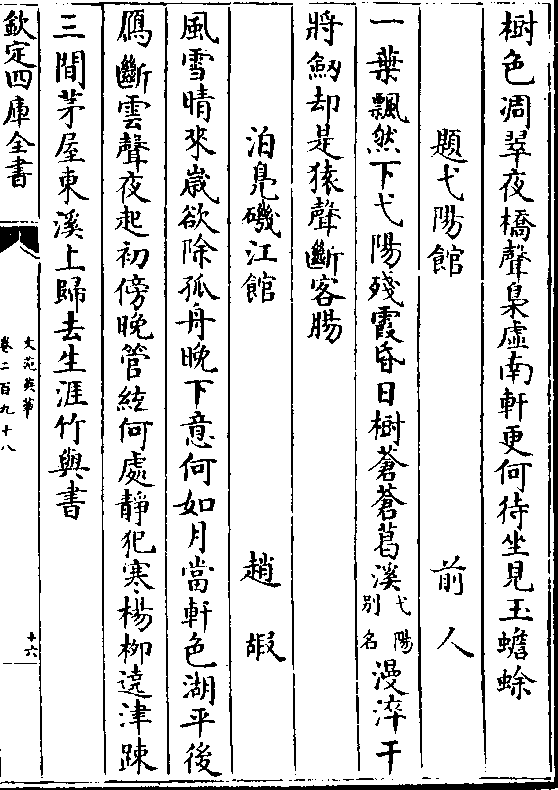 樹色凋翠夜橋聲梟虛南軒更何待坐見玉蟾蜍
題弋陽館 前人
一葉飄然下弋陽殘霞昏日樹蒼蒼葛溪弋陽别名漫淬干
將劒却是猿聲斷客腸
泊鳬磯江館 趙嘏
風雪晴來歲欲除孤舟晚下意何如月當軒色湖平後
鴈斷雲聲夜起初傍晚管絃何處靜犯寒楊柳遶津踈
三間茅屋東溪上歸去生涯竹與書
欽定四庫全書
文苑英華
卷二百九十八
十六